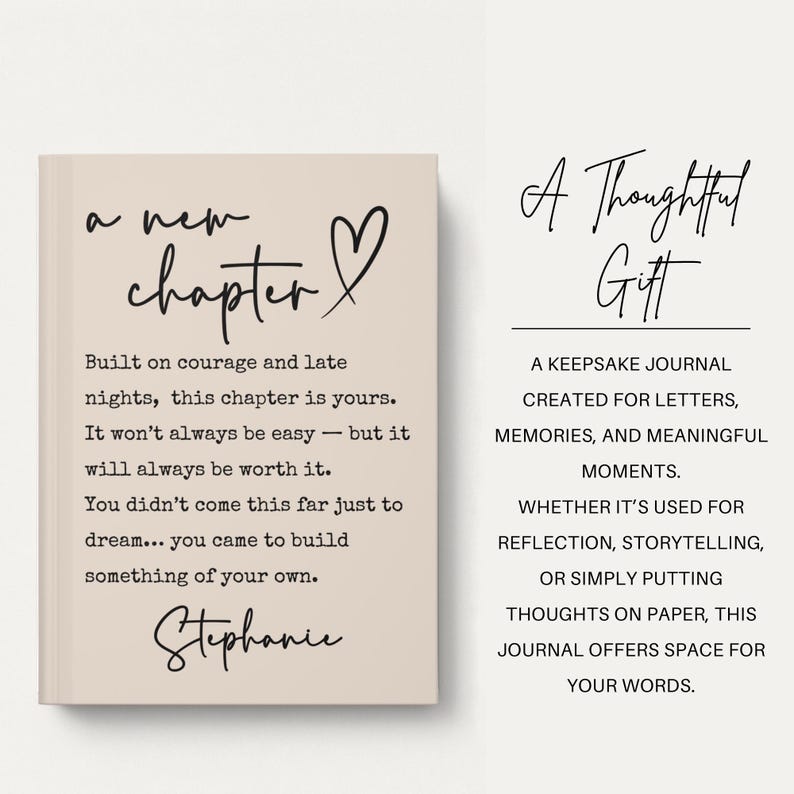 a new
chapter
Built on courage and late
nights, this chapter is yours.
It won't always be easy — but it
will always be worth it.
You didn't come this far just to
dream... you came to build
something of your own.
Stephanie
A Thoughtful
Gift
A KEEPSAKE JOURNAL
CREATED FOR LETTERS,
MEMORIES, AND MEANINGFUL
MOMENTS.
WHETHER IT'S USED FOR
REFLECTION, STORYTELLING,
OR SIMPLY PUTTING
THOUGHTS ON PAPER, THIS
JOURNAL OFFERS SPACE FOR
YOUR WORDS.